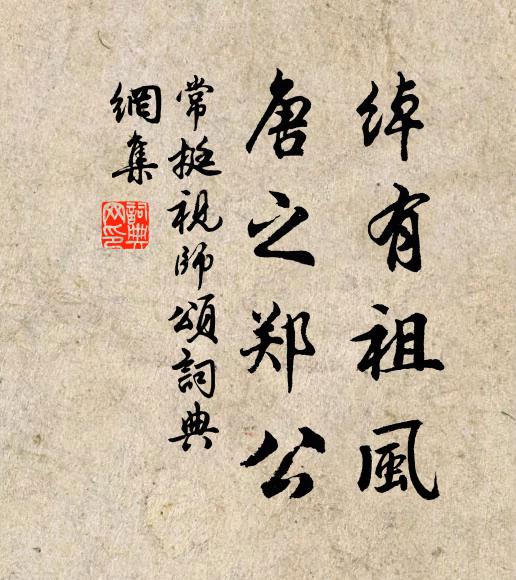 綽有祖風
唐之郑公
常挺視師頌詞典
網集
詞典
网印